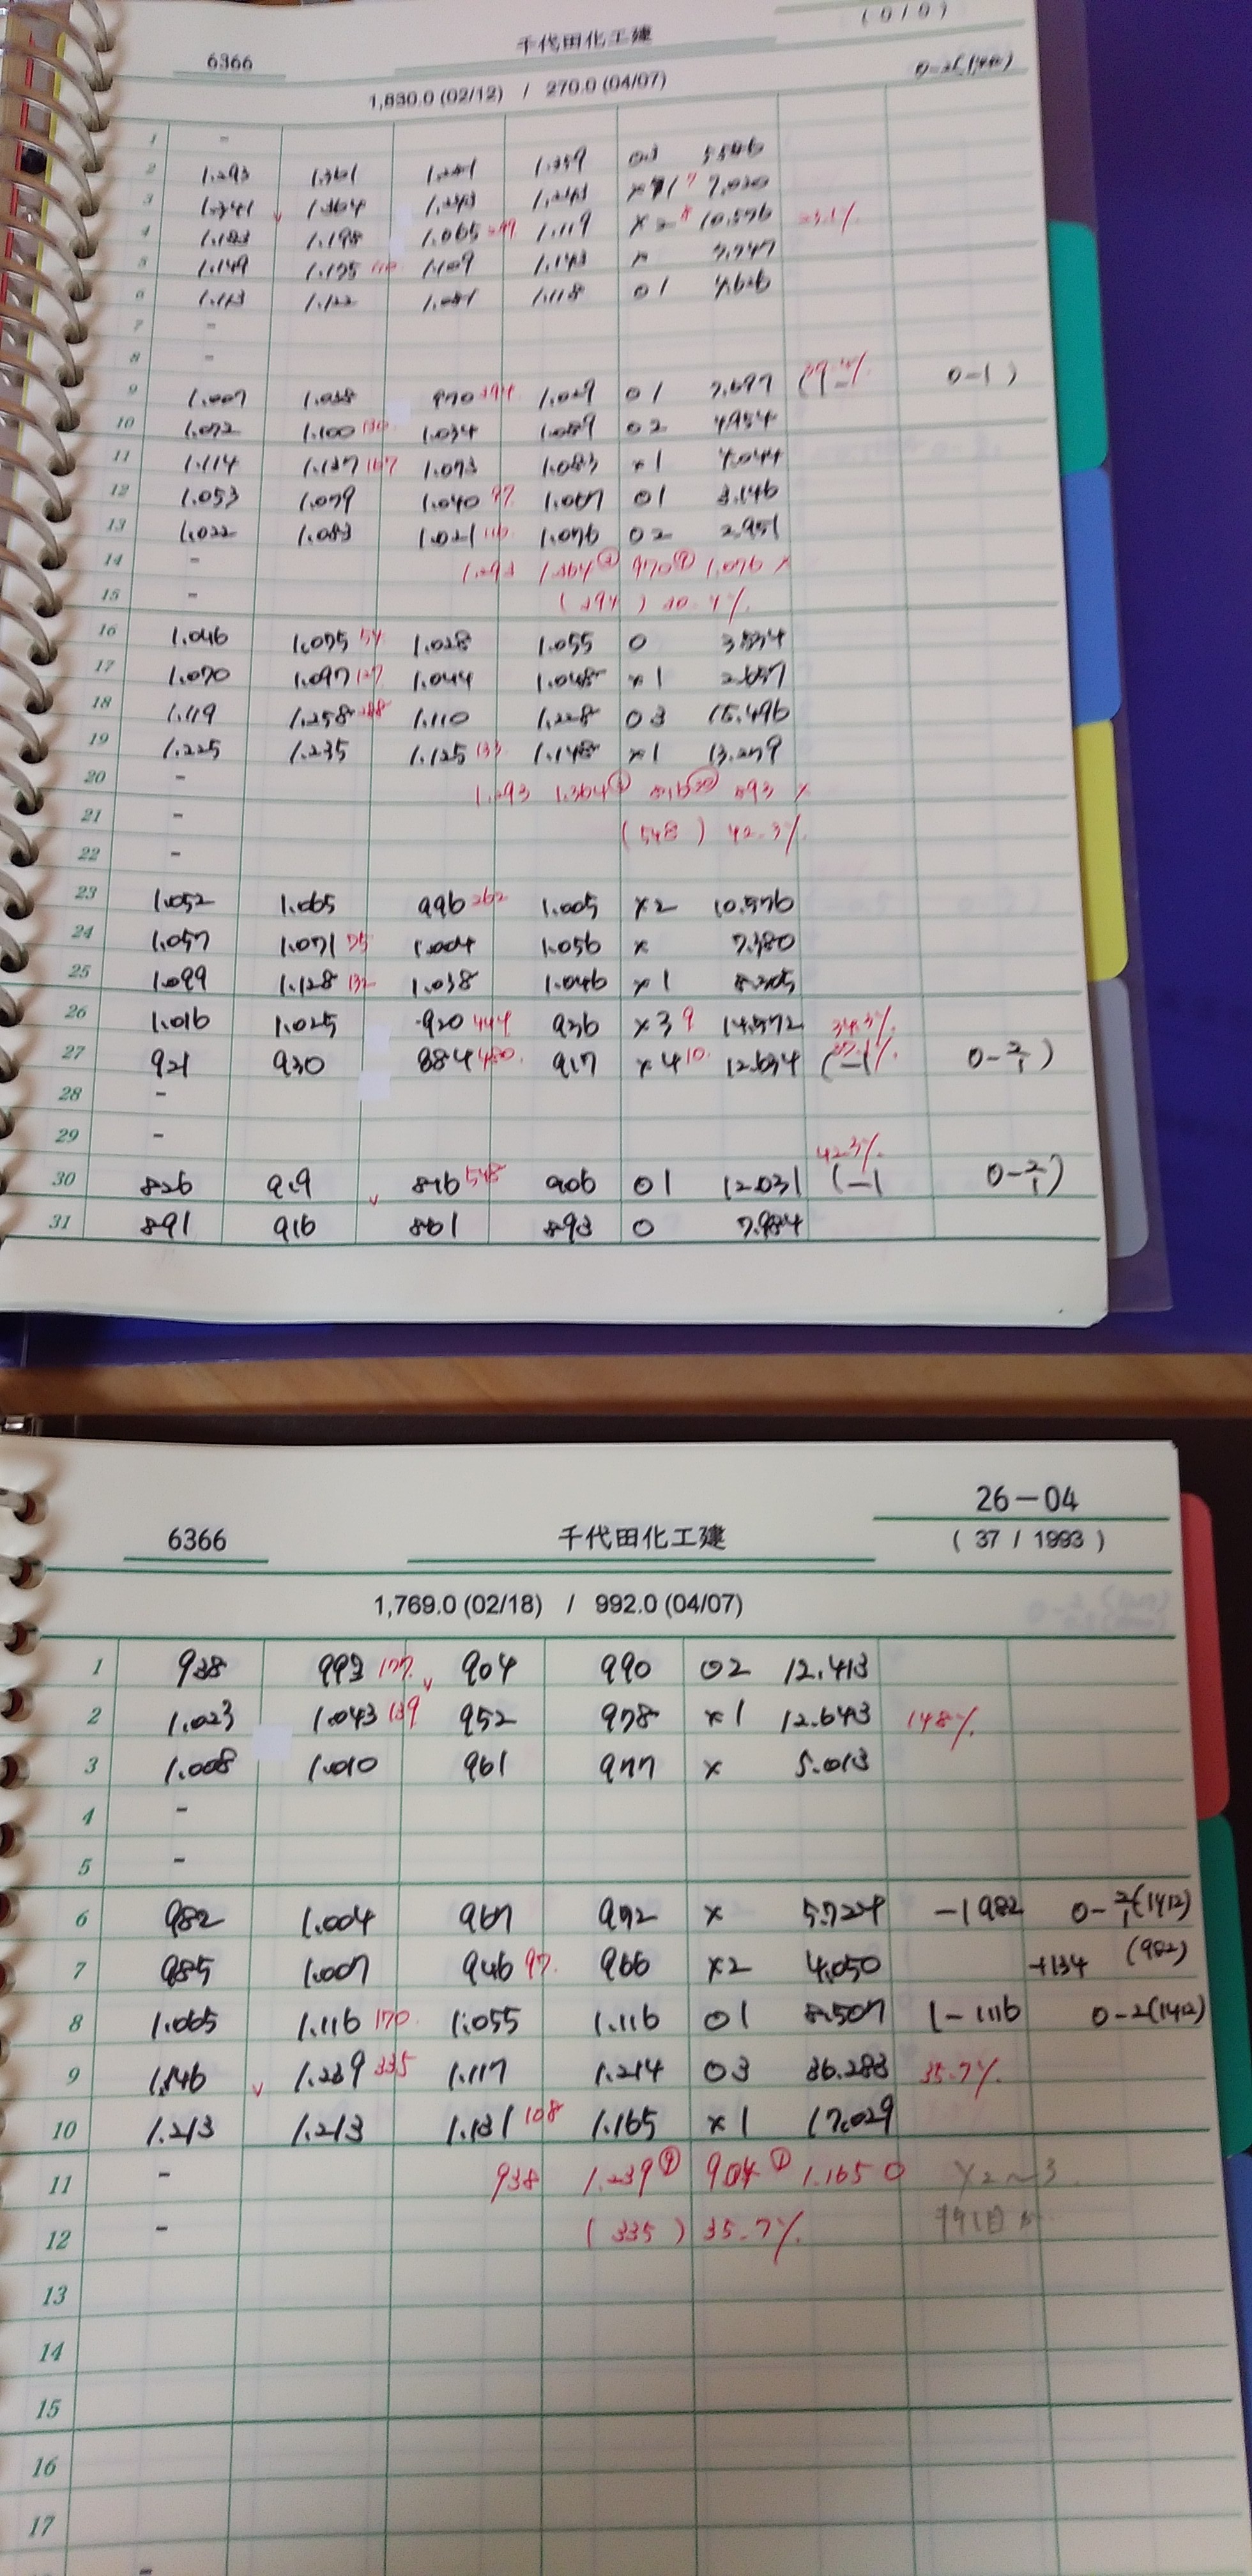 (0/0)
6366 千代田化工建
1,830.0 (02/12) / 270.0 (04/07)
1 -
2 1.293 1.361 1.281 1.359 03 5.546
3 1.341 1.364 ×1 7.030
4 1.183 1.198 1.065 299 1.119 ×2 10.576 23.1%
5 1.149 1.109 1.143 ×
6 1.113 1.122 1.081 1.118 01 4.626
7 -
8 -
9 1.007 1.038 970 394 1.029 01 7.697 0-1)
10 1.072 1.100 130 1.034 1.089 02 4.954
11 1.114 1.137 167 1.073 1.083 ×1 4.044
12 1.053 1.079 1.040 97 1.067 01 3.146
13 1.022 1.083 1.021 116 1.076 02 2.951
14 - 1.293 1.364 970 1.076 ×
15 - (394) 30.4%
16 1.046 1.075 54 1.028 1.055 0 3.534
17 1.070 1.097 127 1.044 1.048 ×1 2.657
18 1.119 1.258 288 1.110 1.228 03 15.496
19 1.225 1.235 1.125 133 1.148 ×1 13.279
20 - 1.293 1.364 816 893 ×
21 - (548) 42.3%
22 -
23 1.052 1.065 996 262 1.005 ×2 10.576
24 1.057 1.071 75 1.004 1.056 × 7.380
25 1.099 1.128 132 1.038 1.046 ×1 8.305
26 1.016 1.025 920 444 936 ×3 9 14.572 34.3%
27 921 930 884 480 917 ×4 10 12.634 37.1% (-1 0-2/1)
28 -
29 -
42.3%
30 826 919 816 548 906 01 12.031 (-1 0-2/1)
31 891 916 861 893 0 7.984
26-04
6366 千代田化工建 ( 37 / 1993 )
1,769.0 (02/18) / 992.0 (04/07)
1 938 993 177 904 990 02 12.413
2 1.023 1.043 139 952 978 ×1 12.643 148%
3 1.008 1.010 961 977 × 5.013
4 -
5 -
6 982 1.004 967 992 × 5.724 -1 982 0-2/1(1412)
7 985 1.007 946 97 966 ×2 4.050 +134 (982)
8 1.065 1.116 170 1.055 1.116 01 8.507 1-1116 0-2(1412)
9 1.146 1.239 335 1.117 1.214 03 36.283 35.7%
10 1.213 1.213 1.131 108 1.165 ×1 17.029
11 - 938 1.239 904 1.165 0
12 - (335) 35.7%
13
14
15
16
17
-